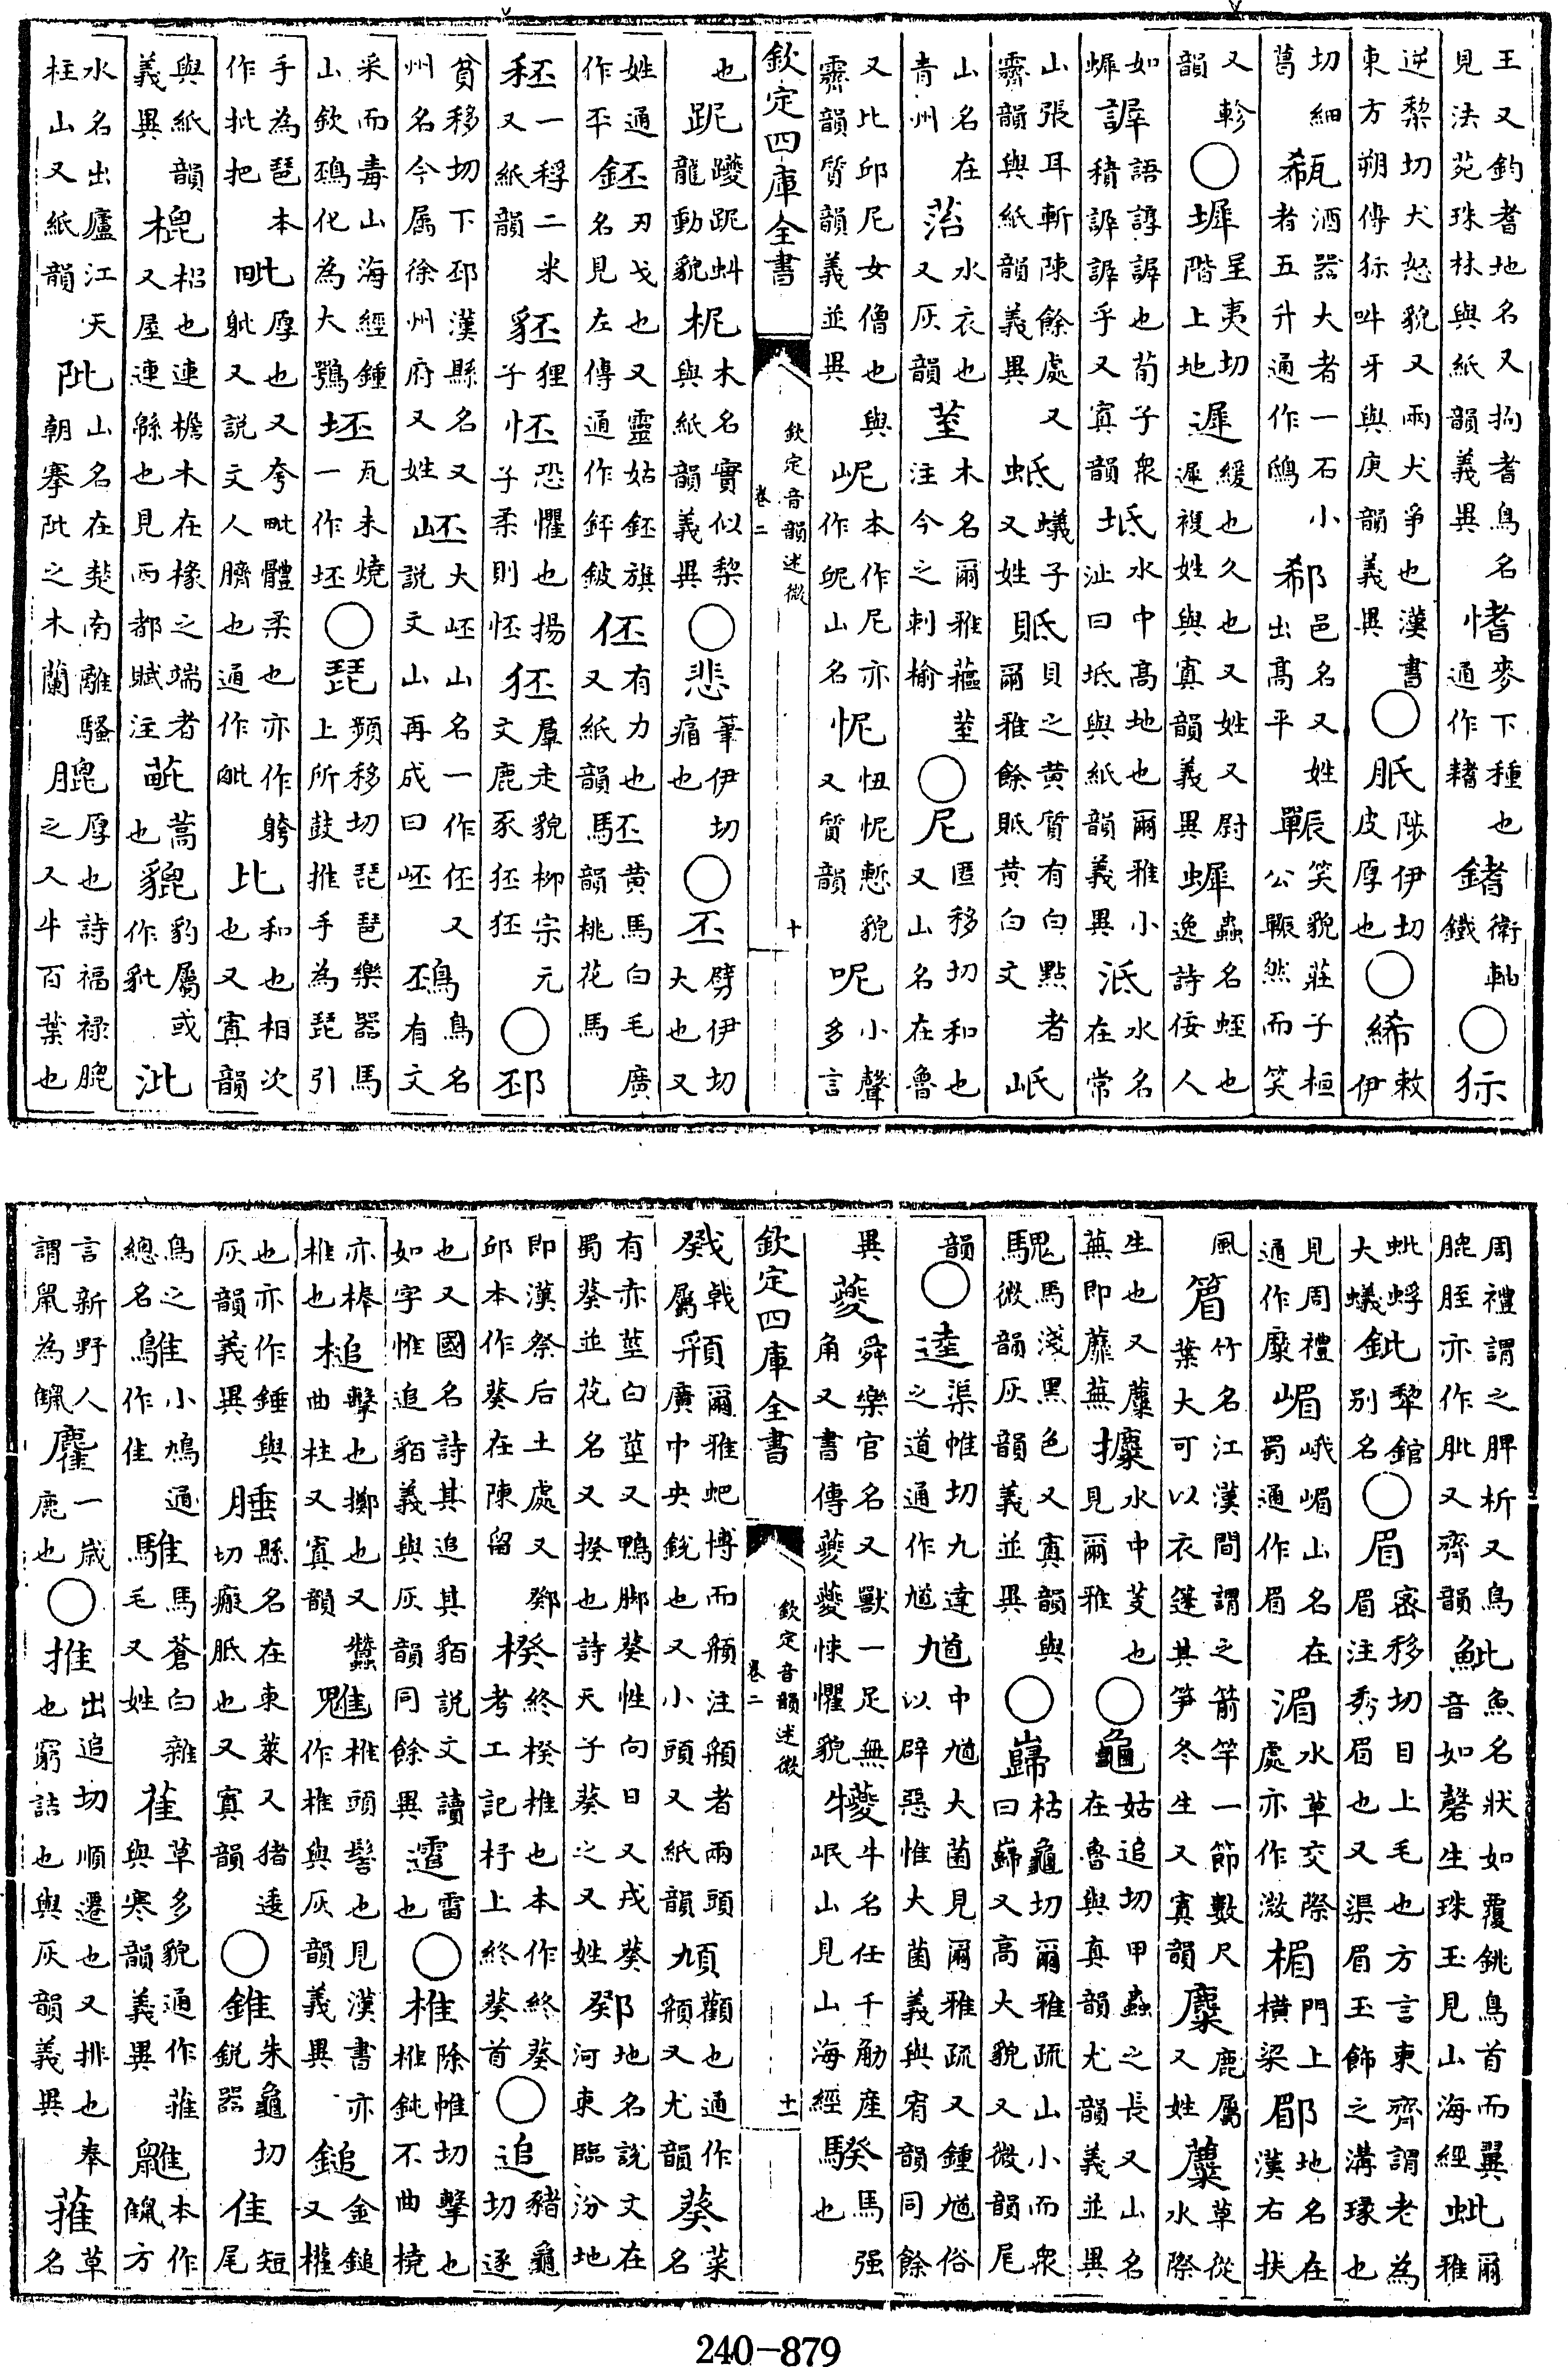 王又鈞耆地名又拘耆鳥名見法苑珠林與紙韻義異愭麥下種也通作䅲鍺衛軸鐵○狋
逆棃切犬怒貌又兩犬爭也漢書東方朔傳狋吽牙與庚韻義異○胝陟伊切皮厚也○絺敕伊
切細葛瓻酒器大者一石小者五升通作鴟郗邑名又姓出高平笑貌莊子桓公然而笑
又軫韻○墀呈夷切階上地遲緩也久也又姓又尉遲複姓與寘韻義異蟲名蛭也逸詩佞人
如謘語諄謘也荀子衆積謘謘乎又寘韻坻水中高地也爾雅小沚曰坻與紙韻義異泜水名在常
山張耳斬陳餘處又霽韻與紙韻義異蚳蟻子又姓貾貝之黄質有白點者爾雅餘貾黄白文岻
山名在青州菭水衣也又灰韻荎木名爾雅藲荎注今之刺榆○尼匿移切和也又山名在魯
又比邱尼女僧也與霽韻質韻義並異本作尼亦作山名怩忸怩慙貌又質韻呢小聲多言
欽定四庫全書 欽定音韻述微 卷二 十
也跜躨跜虯龍動貌柅木名實似棃與紙韻義異○悲筆伊切痛也○丕劈伊切大也又
姓通作平鉟刃戈也又靈姑鉟旗名見左傳通作鉟鈹伾有力也又紙韻駓黄馬白毛廣韻桃花馬
秠一稃二米又紙韻豾狸子怌恐懼也揚子柔則怌狉羣走貌柳宗元文鹿豕狉狉○邳
貧移切下邳漢縣名又州名今属徐州府又姓岯大岯山名一作伾又説文山再成曰岯鳥名有文
采而毒山海經鍾山欽化為大鶚坯瓦未燒一作坯○琵頻移切琵琶樂器馬上所鼓推手為琵引
手為琶本作批把毗厚也又夸毗體柔也亦作躬又説文人臍也通作毗比和也相次也又寘韻
與紙韻義異槐梠也連檐木在椽之端者又屋連緜也見兩都賦注蓖蒿也貔豹屬或作豼沘
水名出廬江天柱山又紙韻阰山名在楚南離騷朝搴阰之木蘭膍厚也詩福禄膍之又牛百葉也
周禮謂之脾析又鳥膍胵亦作肶又齊韻魮魚名狀如覆銚鳥首而翼音如磬生珠玉見山海經蚍爾雅
蚍蜉大蟻鈚犂錧別名○眉密移切目上毛也方言東齊謂老為眉注秀眉也又渠眉玉飾之溝瑑也
見周禮通作麋嵋峨嵋山名在蜀通作眉湄水草交際處亦作溦楣門上横梁郿地名在漢右扶
風篃竹名江漢間謂之箭竿一節數尺葉大可以衣篷其笋冬生又寘韻麋鹿屬又姓蘪草從水際
生也又蘪蕪即蘼蕪水中芰也見爾雅○龜姑追切甲蟲之長又山名在魯與真韻尤韻義並異
騩馬淺黑色又寘韻與微韻灰韻義並異○巋枯龜切爾雅疏山小而衆曰巋又高大貌又微韻尾
韻○逵渠惟切九達之道通作馗馗中馗大菌見爾雅疏又鍾馗俗以辟惡惟大菌義與宥韻同餘
異夔舜樂官名又獸一足無角又書傳夔夔悚懼貌犪牛名任千觔産岷山見山海經騤馬强也
欽定四庫全書 欽定音韻述微 卷二 十一
戣戟屬頯爾雅蚆博而頯注頯者兩頭廣中央銳也又小頭又紙韻頄顴也通作頯又尤韻葵菜名
有赤莖白莖又鴨脚葵性向日又戎葵蜀葵並花名又揆也詩天子葵之又姓鄈地名説文在河東臨汾地
即漢祭后土處又鄈邱本作葵在陳留楑終楑椎也本作終葵考工記杼上終葵首○追豬龜切逐
也又國名詩其追其貊説文讀如字惟追貊義與灰韻同餘異䨓雷也○椎除惟切擊也椎鈍不曲橈
亦棒椎也槌擊也擲也又蠶曲柱又寘韻魋椎頭髻也見漢書亦作椎與灰韻義異鎚金鎚又權
也亦作錘與灰韻義異腄縣名在東萊又猪切瘢胝也又寘韻○錐朱龜切銳器隹短尾
鳥之總名鵻小鳩通作隹騅馬蒼白雜毛又姓萑草多貌通作蓷與寒韻義異本作方
言新野人謂鼠為一歳鹿也○推出追切順遷也又排也奉也窮詰也與灰韻義異蓷草名
240-879